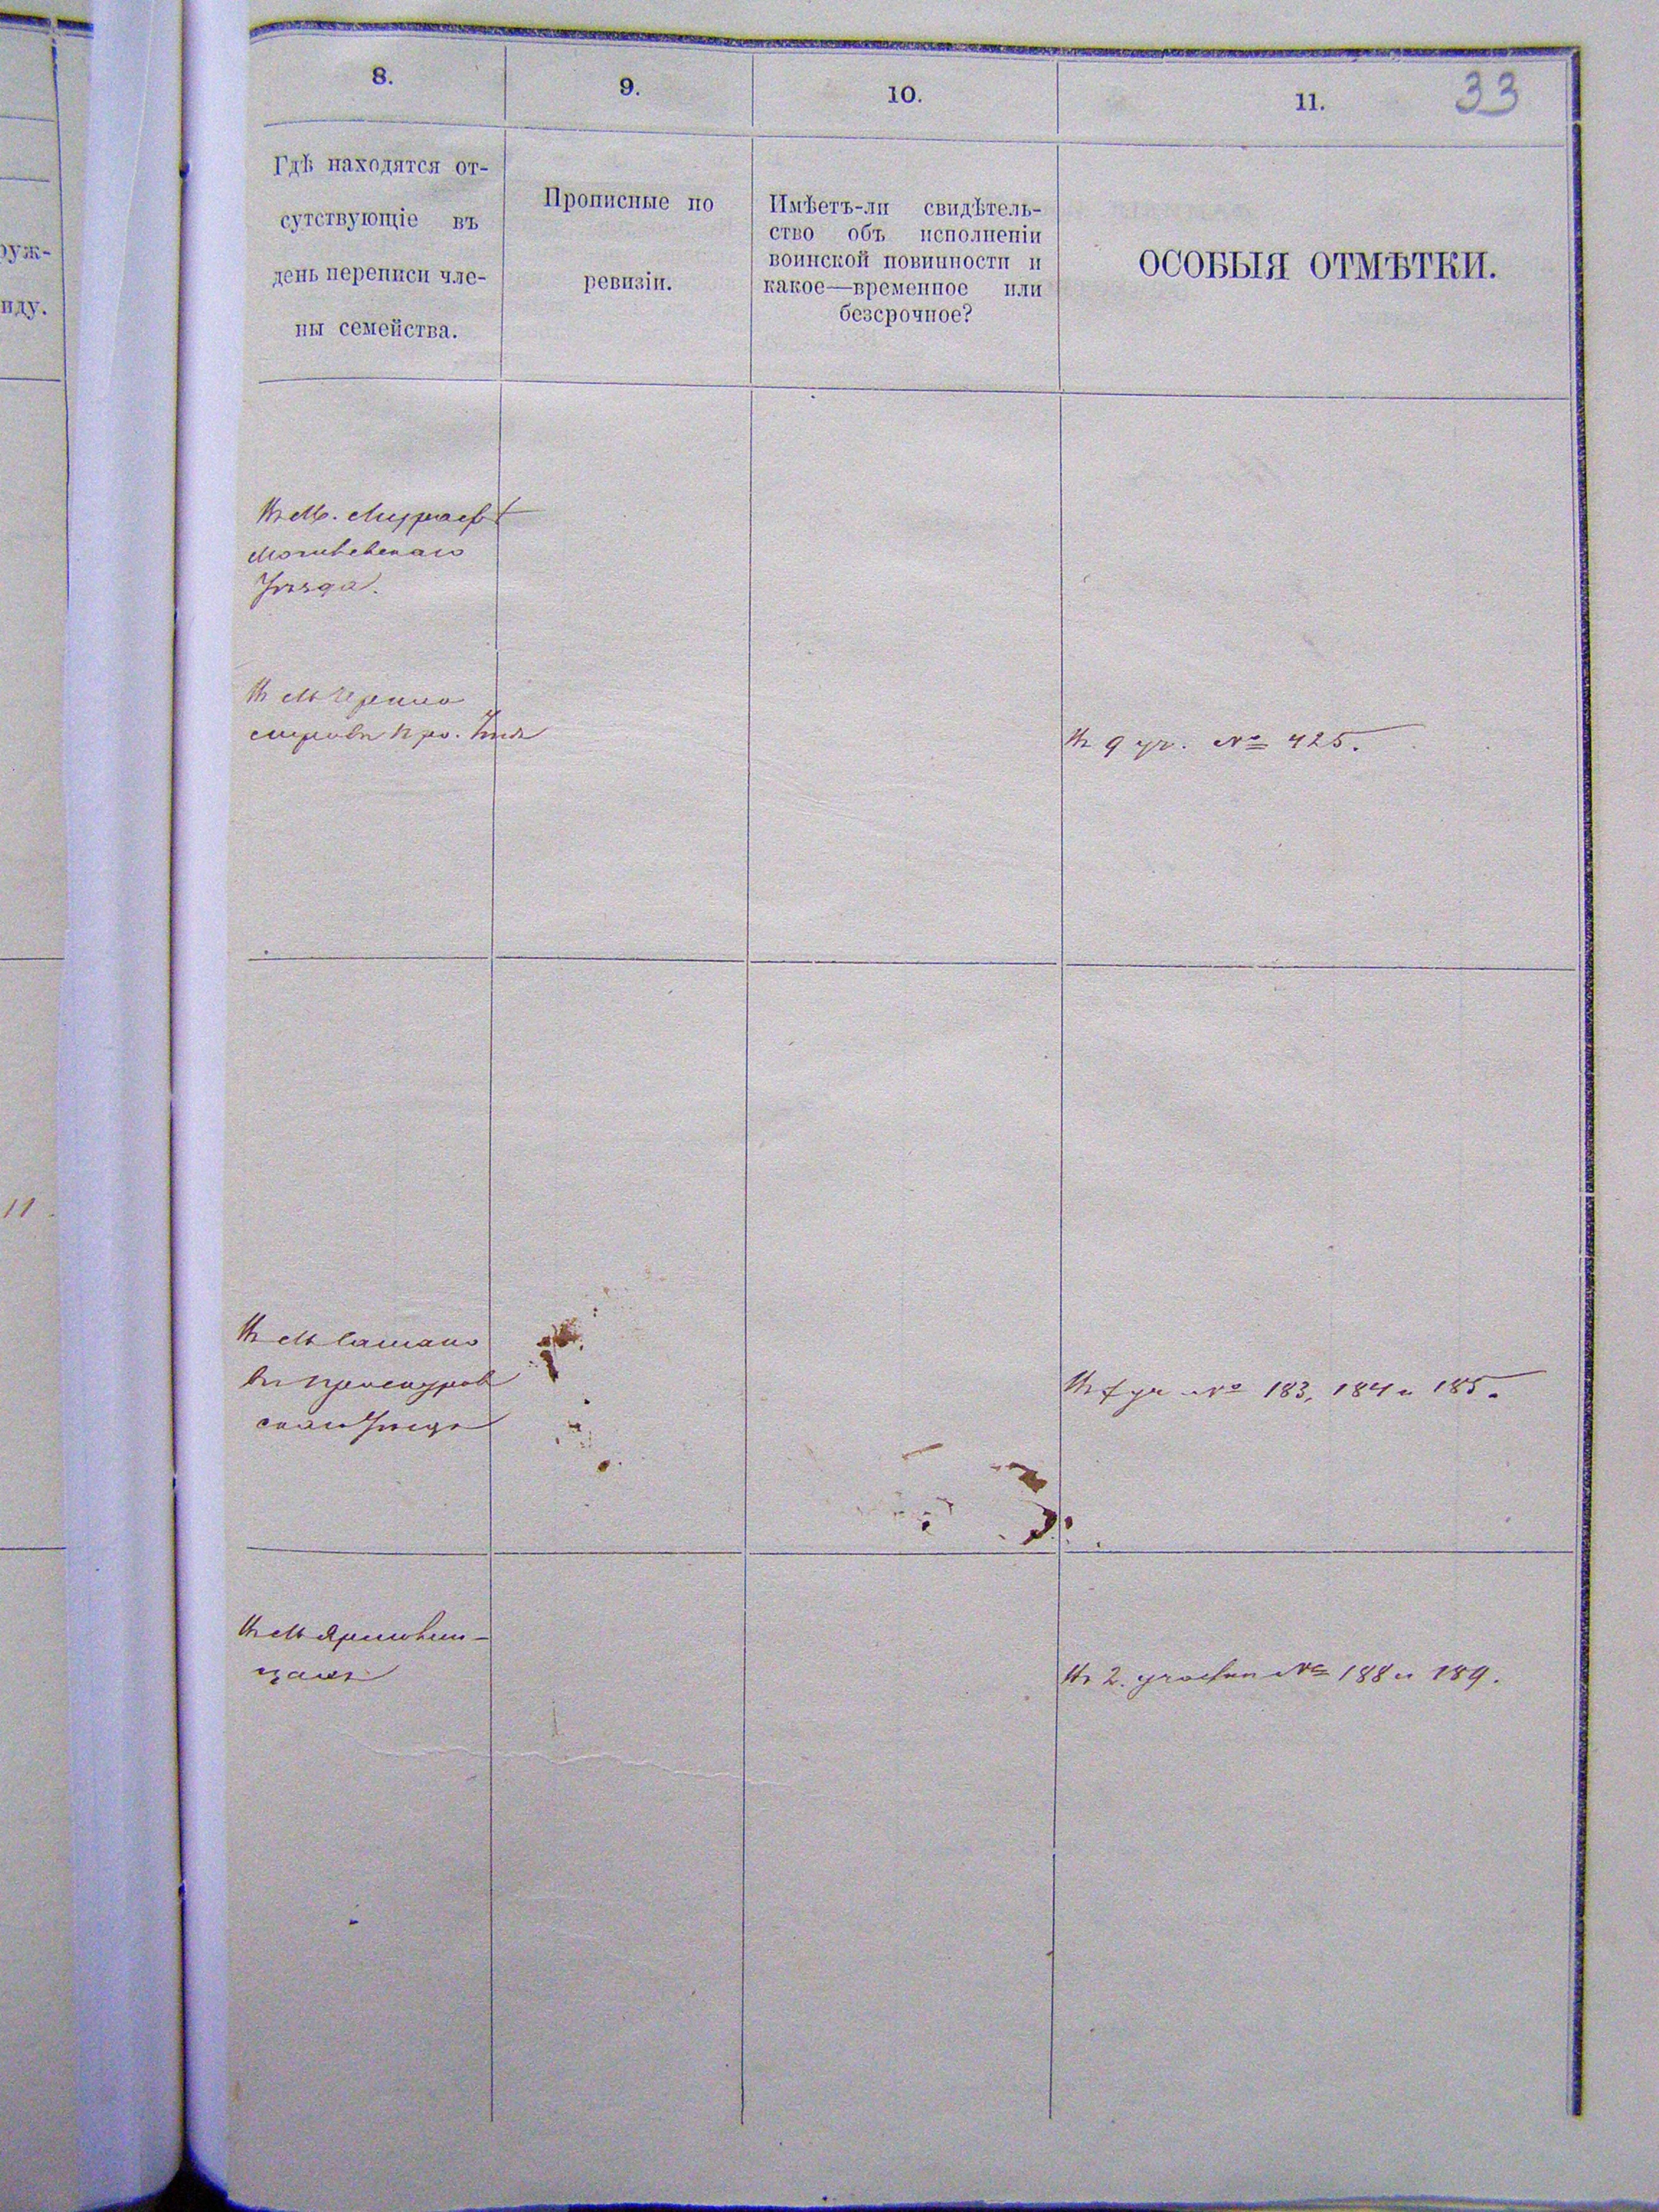 33
8.
9.
10.
11.
Гдѣ находятся от-
сутствующіе въ
день переписи чле-
ны семейства.
Прописные по
ревизіи.
Имѣетъ-ли свидѣтель-
ство объ исполненіи
воинской повинности и
какое—временное или
безсрочное?
ОСОБЫЯ ОТМѢТКИ.
руж-
иду.
Въ М.
Могилевскаго
Уѣзда.
Въ М Черно
Въ 9 уч. № 425.
11
Въ М Сатано
въ Проскуров
скомъ Уѣздѣ
уч № 183, 184 и 185.
Въ М Ярмолин-
цахъ
Въ 2. участкѣ № 188 и 189.